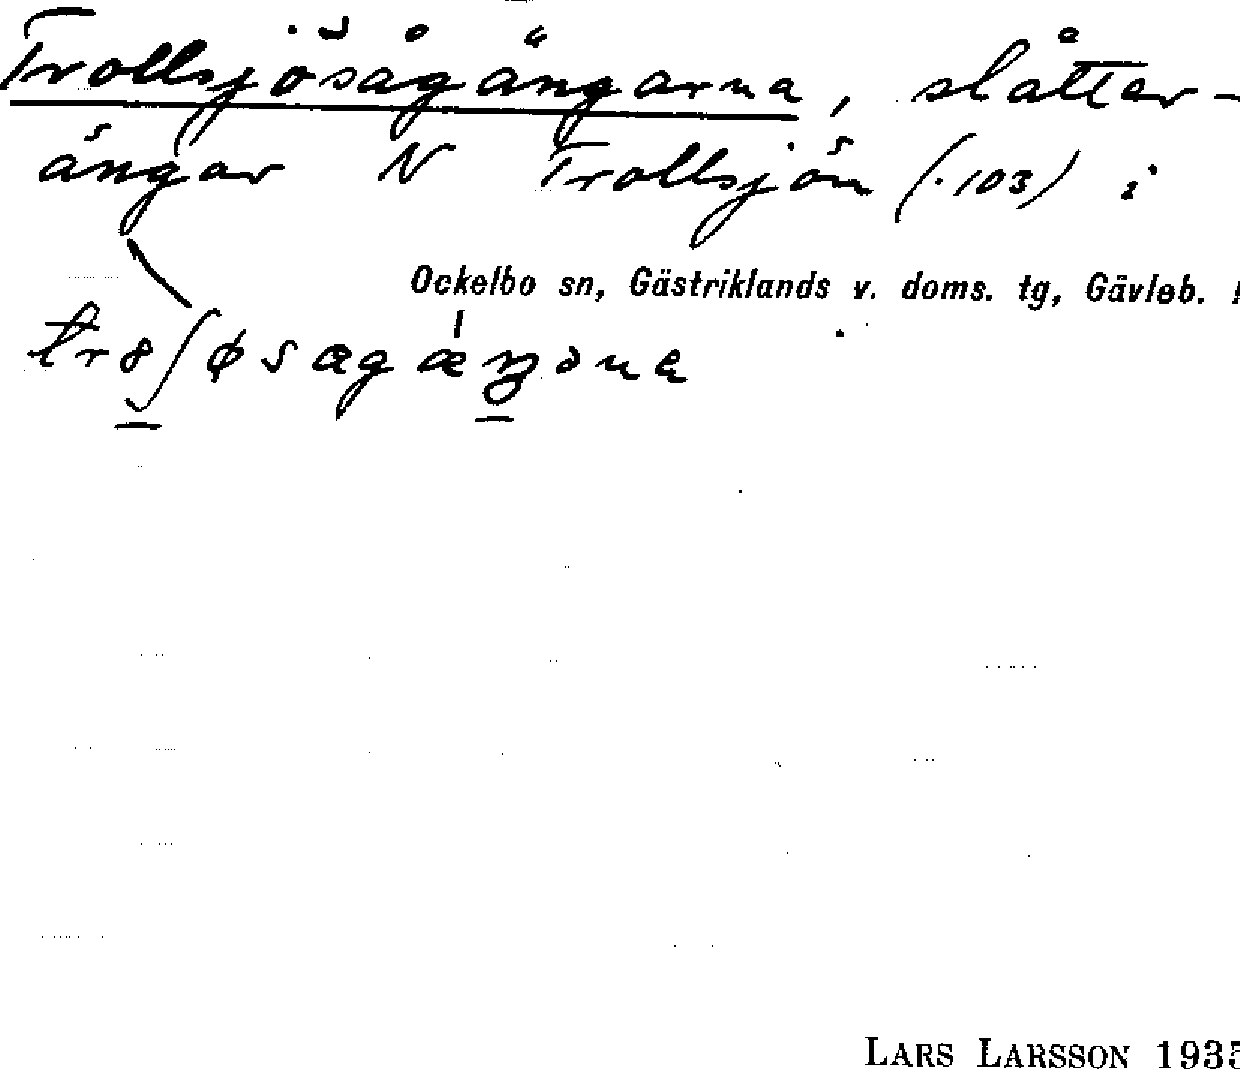 Trollsjösågängarna, slåtter-
ängar N Trollsjön (.103) i
Ockelbo sn, Gästriklands v. doms. tg, Gävleb.
LARS LARSSON 1935